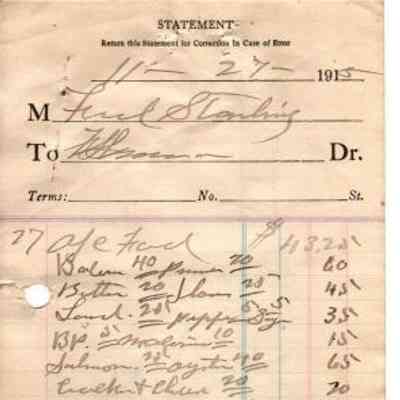 STATEMENT
Return this Statement for Correction In Case of Error
11 - 27 - 1915
M Fred Starling
To Dr.
Terms: No. St.
27 a/c Ford $ 43.25
Bacon 40 Prunes 20 60
Butter 20 Flour 25 45
Lard. 25 Pepper 5 5 35
B.P. 5 10 15
Salmon. 25 Oyster 40 65
20 20